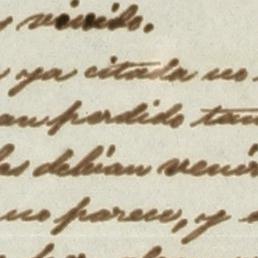 y vivido.
ya citada no
an perdido tan
les debian venir
no parece, y